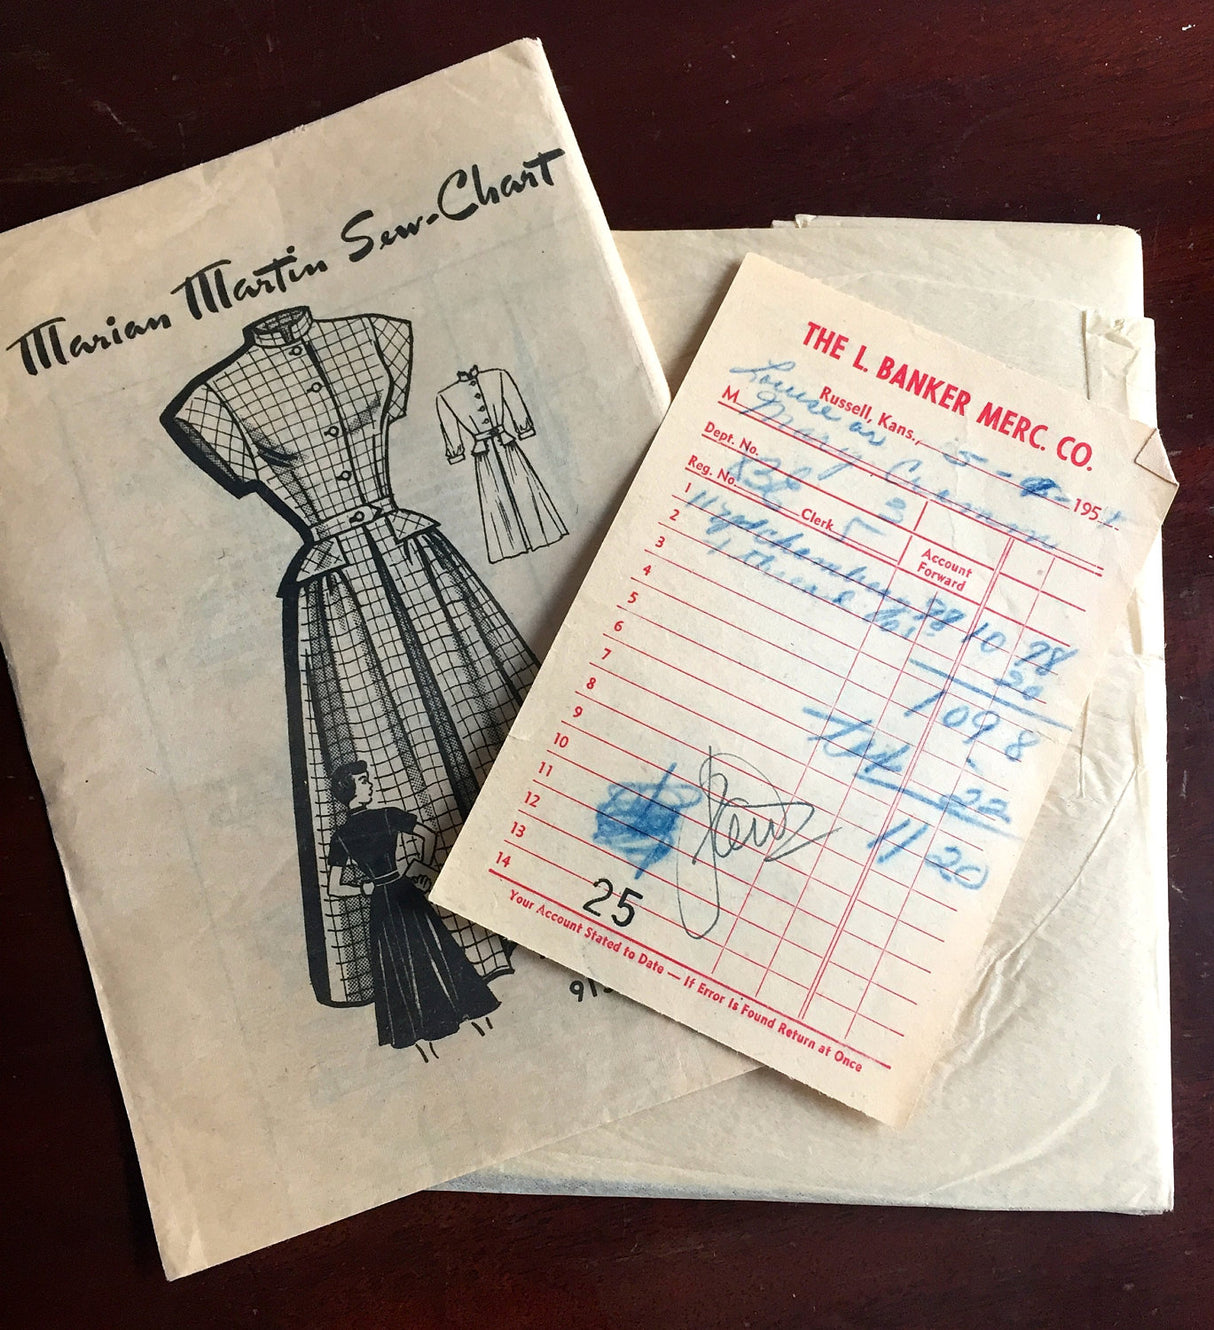 Marian Martin Sew-Chart
THE L. BANKER MERC. CO.
Russell, Kans., 5- 195
Louise or
M Mary
Dept. No. 3
Reg. No. Clerk 5
Account Forward
1 11 yd 98 10 78
2 1 thread 20
3 1098
4
5 tax 22
6 11 20
7
8
9
10
11
12
13
14
25
Your Account Stated to Date — If Error Is Found Return at Once